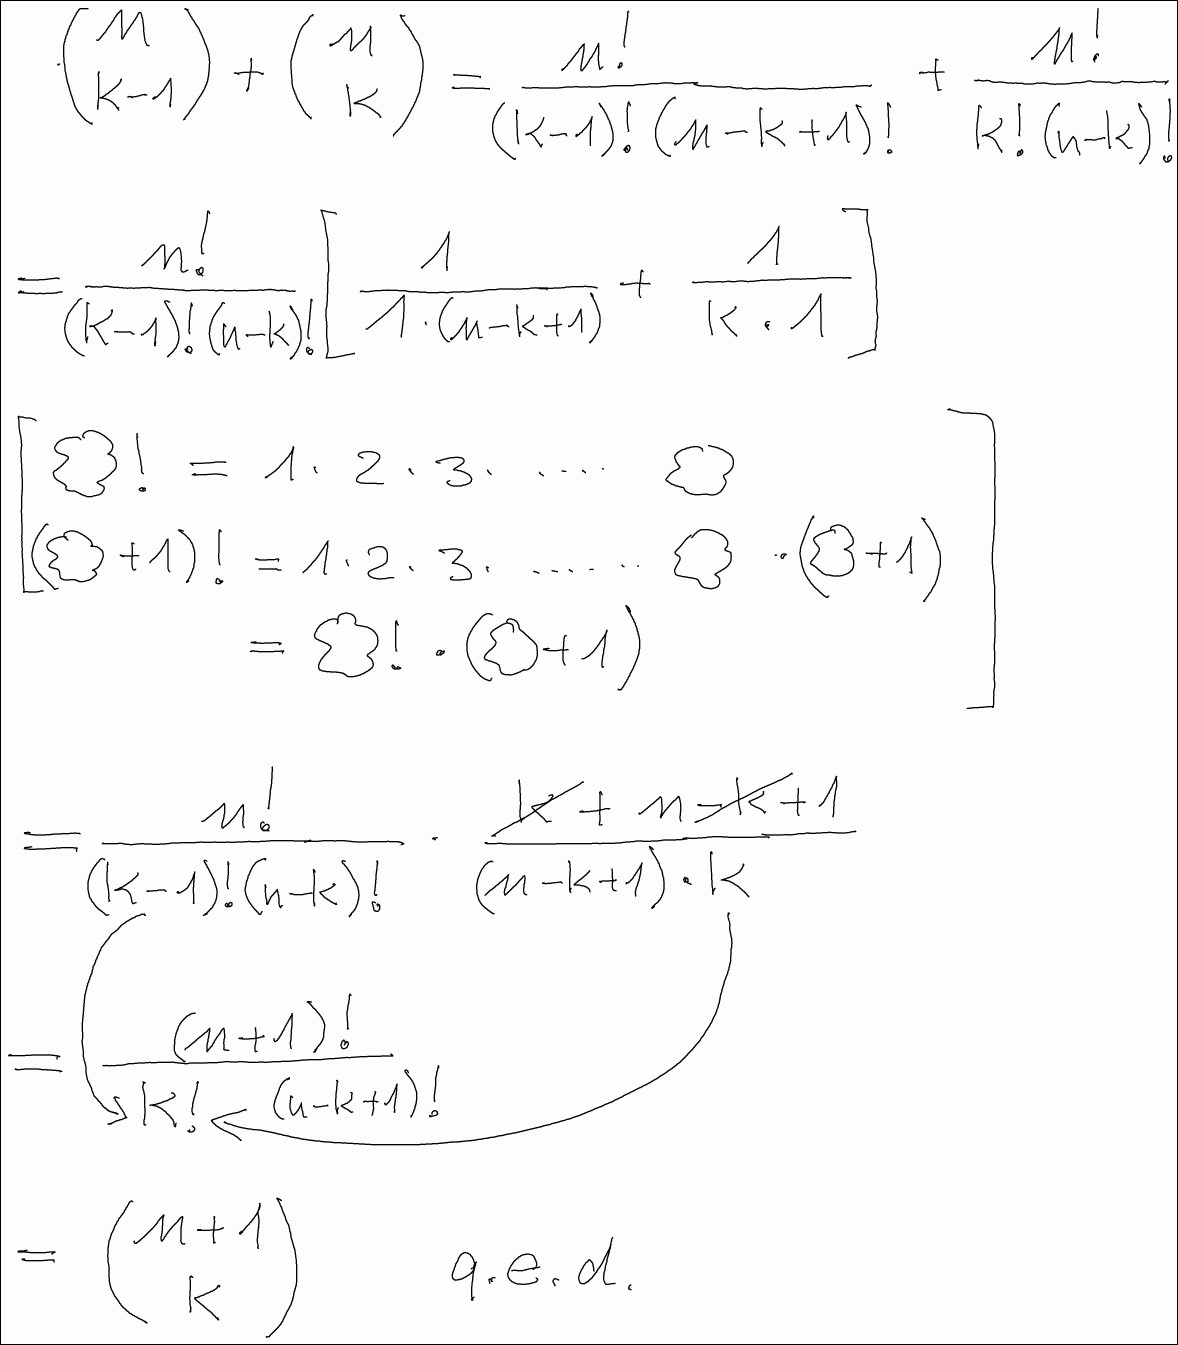 $\binom{n}{k-1} + \binom{n}{k} = \frac{n!}{(k-1)!(n-k+1)!} + \frac{n!}{k!(n-k)!}$
$= \frac{n!}{(k-1)!(n-k)!} \left[ \frac{1}{1 \cdot (n-k+1)} + \frac{1}{k \cdot 1} \right]$
! = 1 · 2 · 3 · ....
( +1)! = 1 · 2 · 3 · ....... · ( +1)
= ! · ( +1)
$= \frac{n!}{(k-1)!(n-k)!} \cdot \frac{\cancel{k} + n \cancel{-k} + 1}{(n-k+1) \cdot k}$
$= \frac{(n+1)!}{k! (n-k+1)!}$
$= \binom{n+1}{k}$ q.e.d.